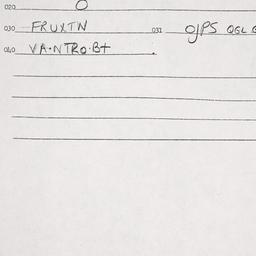 020 O
030 FRUXTN 031 OJPS QGL
040 VA·NTRO·B+